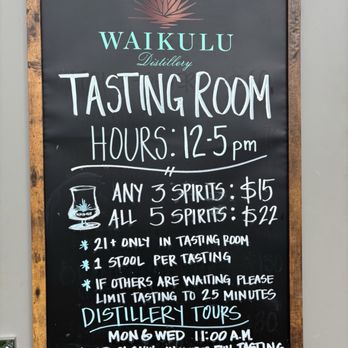 WAIKULU
Distillery
TASTING ROOM
HOURS: 12-5 pm
ANY 3 SPIRITS: $15
ALL 5 SPIRITS: $22
* 21+ ONLY IN TASTING ROOM
* 1 STOOL PER TASTING
* IF OTHERS ARE WAITING PLEASE
LIMIT TASTING TO 25 MINUTES
DISTILLERY TOURS
MON & WED 11:00 A.M.
TASTING